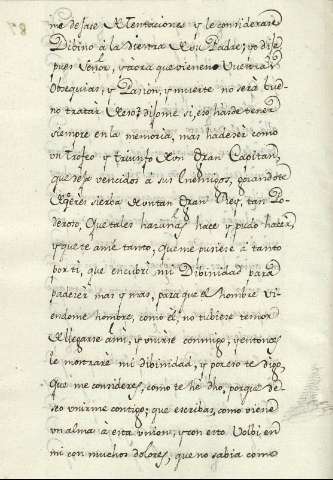 me dejase de tentaciones y le considerase
Dibino à la diestra de su Padre; yo dije
pues Señor, y aora que vienen Vuestras
Obsequias, y Pasion, y muerte no serà bue
no tratar de eso? dijome si, eso hà de tener
siempre en la memoria, mas hà de ser como
un trofeo y triunfo de un Gran Capitan,
que dejo vencidos à sus Enemigos, gozandote
de q eres sierba de un tan Gran Rey, tan Po
deroso, Que tales hazañas hace y pudo hacer,
y que te amè tanto, Que me pusiese à tanto
por ti, que encubri mi Dibinidad para
padecer mas y mas, para que el hombre vi
endome hombre, como èl, no tubiese temor
de llegarse à mi, y unirse conmigo; y entonces
le mostrarè mi dibinidad, y por eso te digo,
Que me consideres, como te he dho, porque de
seo unirme contigo; que escribas, como viene
un alma à esta union, y con esto Volbi en
mi con muchos dolores, que no sabia como